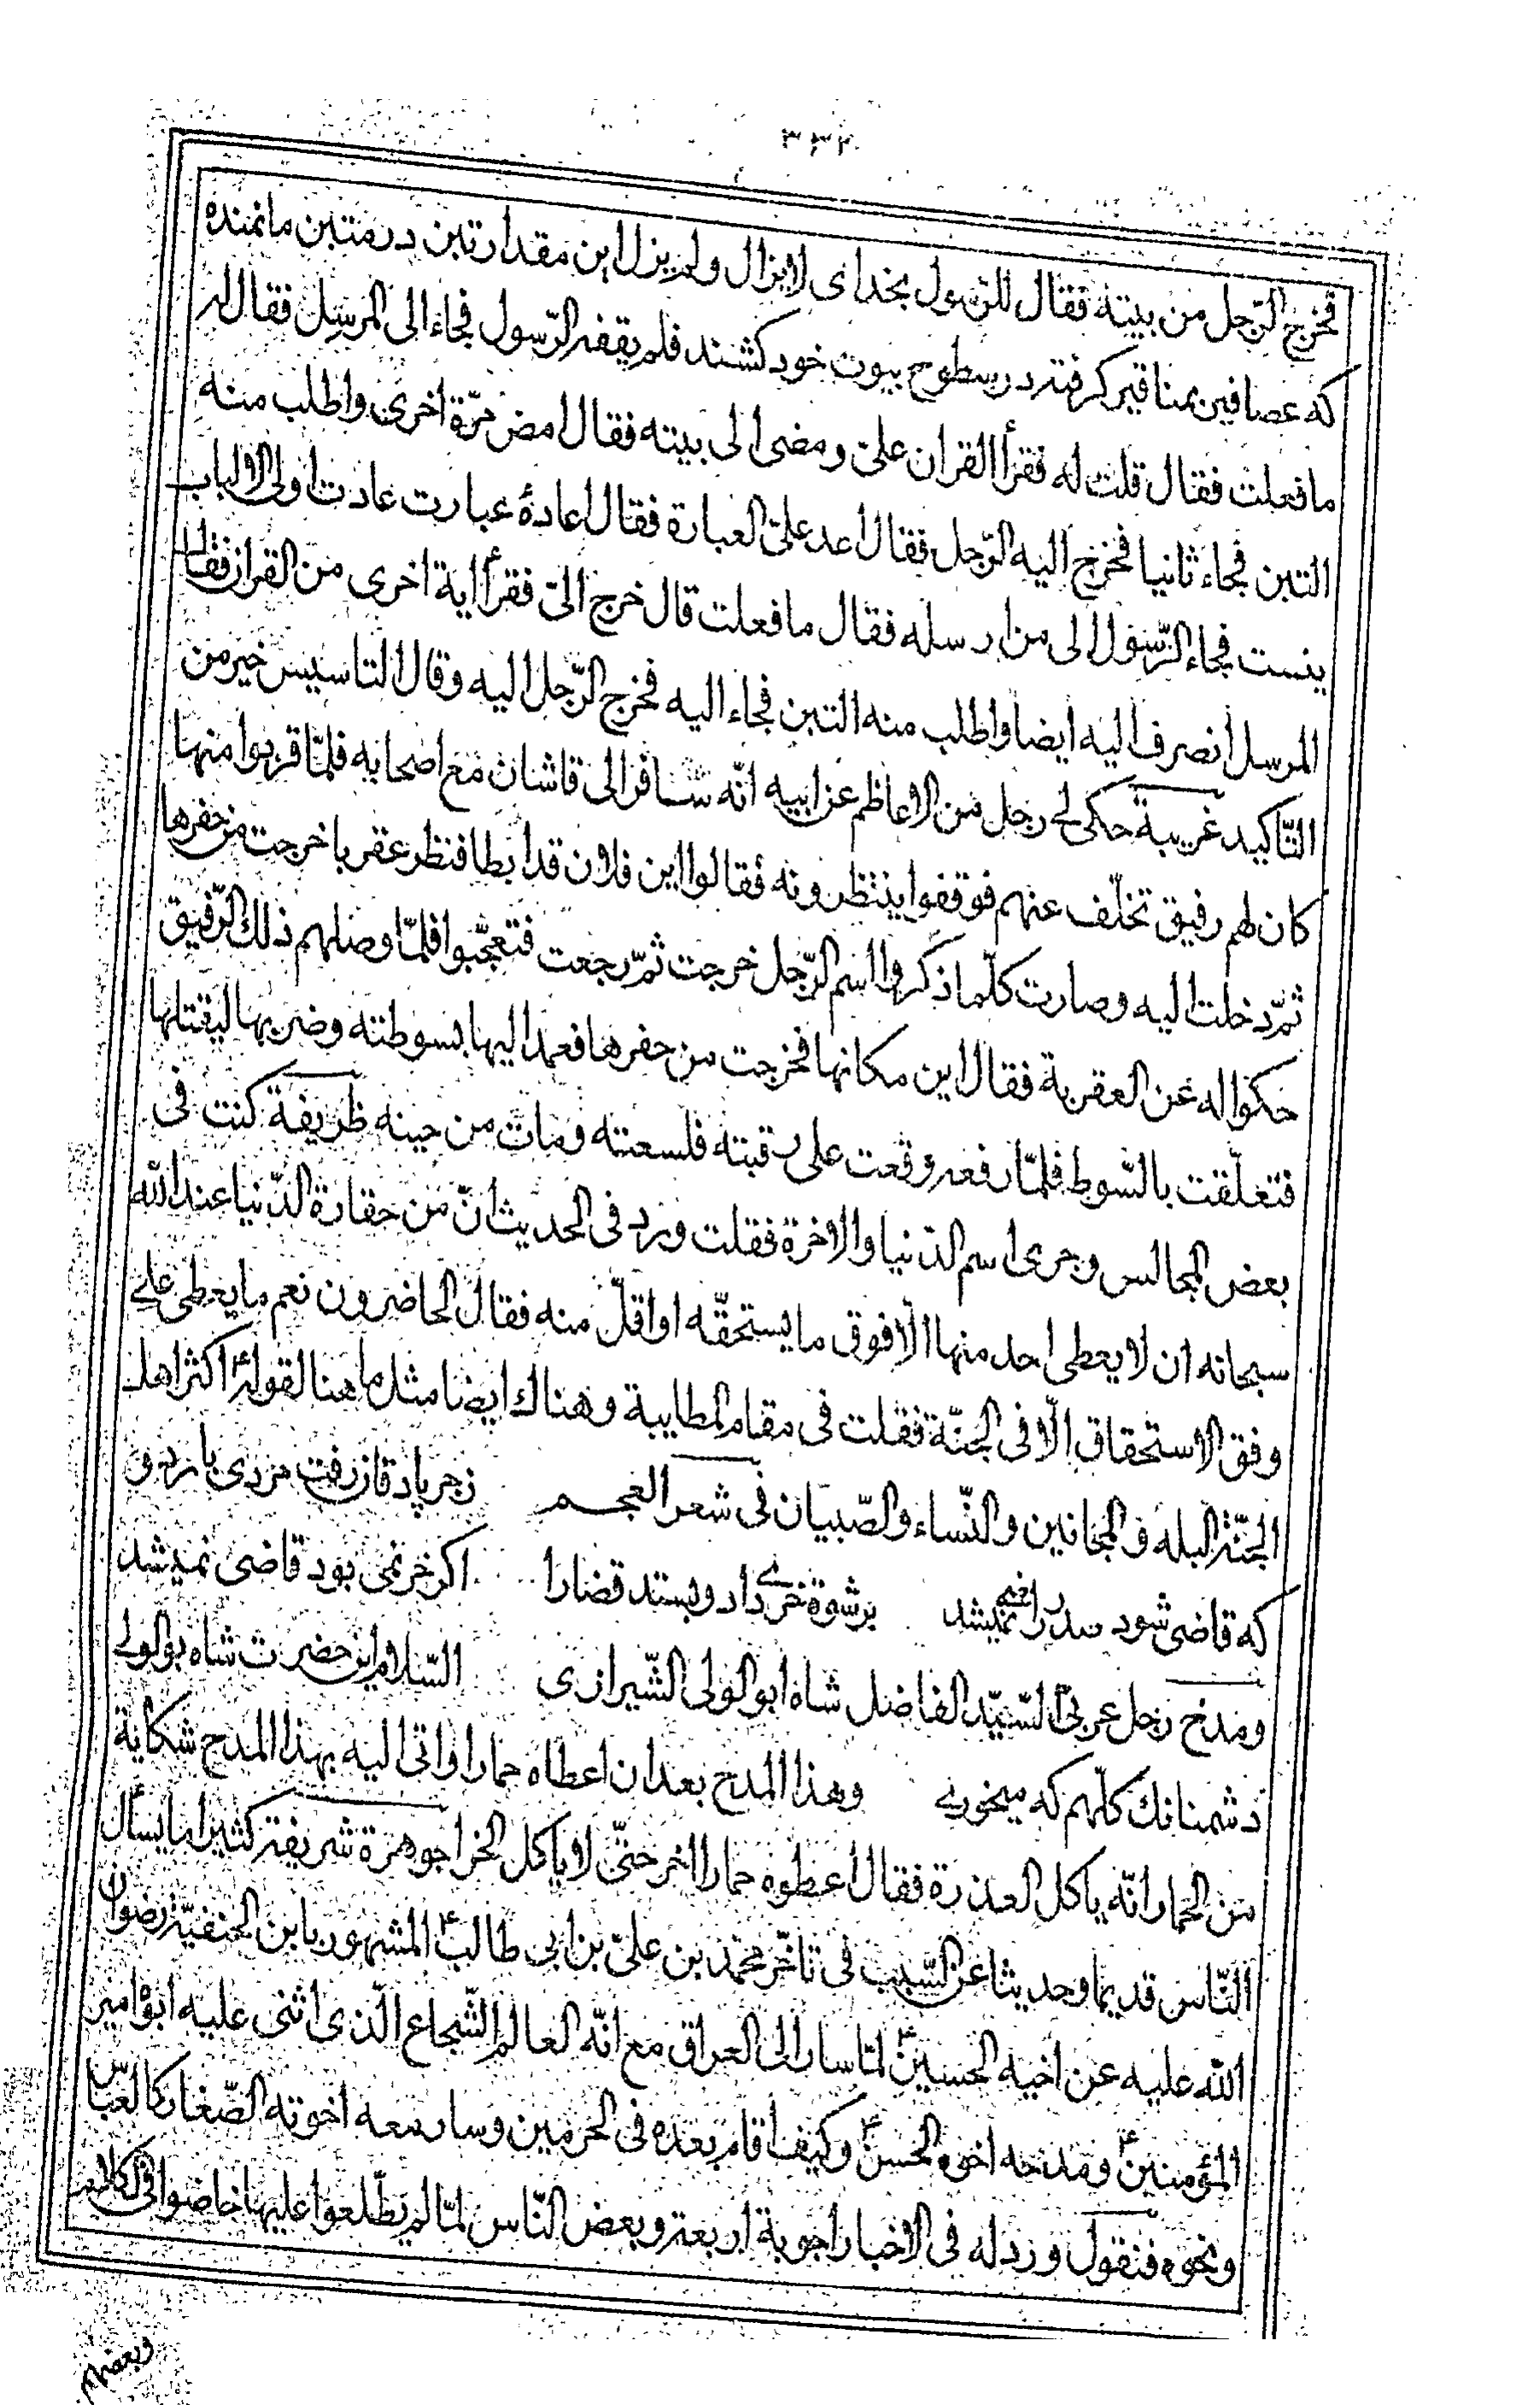 ٣٣٢
فخرج الرّجل من بيته فقال للرّسول بخداى لايزال ولم يزل اين مقدار تبن در متبن ما نمنده
كه عصافين بمناقير كرفته در سطوح بيوت خود كشند فلم يفقه الرّسول فجاء الى المرسل فقال له
ما فعلت فقال قلت له فقرأ القران علىّ ومضى الى بيته فقال امض مرّة اخرى واطلب منه
التبن فجاء ثانيا فخرج اليه الرّجل فقال اعد علىّ العبارة فقال اعادهٔ عبارت عادت اولى الالباب
ينست فجاء الرّسول الى من ارسله فقال ما فعلت قال خرج الىّ فقرأ اية اخرى من القران فقال
المرسل انصرف اليه ايضا واطلب منه التبن فجاء اليه فخرج الرّجل اليه وقال التاسيس خير من
التّاكيد غريبة حكى لى رجل من الاعاظم عن ابيه انّه سافر الى قاشان مع اصحابه فلمّا قربوا منها
كان لهم رفيق تخلّف عنهم فوقفوا ينتظرونه فقالوا اين فلان قد ابطا فنظر عقربا خرجت من حفرها
ثمّ دخلت اليه وصارت كلّما ذكروا اسم الرّجل خرجت ثمّ رجعت فتعجّبوا فلمّا وصلهم ذلك الرّفيق
حكوا له عن العقربة فقال اين مكانها فخرجت من حفرها فعمد اليها بسوطته وضربها ليقتلها
فتعلّقت بالسّوط فلمّا رفعه وقعت على رقبته فلسعته ومات من حينه ظريفة كنت فى
بعض المجالس وجرى اسم الدّنيا والاخرة فقلت ورد فى الحديث انّ من حقارة الدّنيا عند الله
سبحانه ان لا يعطى احد منها الّا فوق ما يستحقّه او اقلّ منه فقال الحاضرون نعم ما يعطى على
وفق الاستحقاق الّا فى الجنّة فقلت فى مقام المطايبة وهناك ايضا مثل ما هنا لقوله ع اكثر اهل
الجنّة البله والمجانين والنّساء والصّبيان فى شعر العجم زجر پادقان رفت مردى بارد و
كه قاضى شود صدر راضى نميشد برشوة خرى داد وبستد قضارا اكر خر نمى بود قاضى نميشد
ومدح رجل عربىّ السّيّد الفاضل شاه ابو الولى الشّيرازى السّلام اين حضرت شاه بو الولى
دشمنانك كلّهم كه ميخورى وهذا المدح بعد ان اعطاه حمارا واتى اليه بهذا المدح شكاية
من الحمار انّه ياكل العذرة فقال اعطوه حمارا اخر حتّى لا ياكل الخرا جوهرة شريفة كثيرا ما يسأل
النّاس قديما وحديثا عن السّبب فى تاخّر محمّد بن علىّ بن ابى طالب ع المشهور بابن الحنفيّة رضوان
الله عليه عن اخيه الحسين ع لمّا سار الى العراق مع انّه العالم الشّجاع الّذى اثنى عليه ابوه امير
المؤمنين ع ومدحه اخوه الحسن ع وكيف اقام بعده فى الحرمين وسار معه اخوته الصّغار كالعبّاس
ونحوه فنقول ورد له فى الاخبار اجوبة اربعة وبعض النّاس لمّا لم يطّلعوا عليها خاضوا فى الكلام
وبعضهم